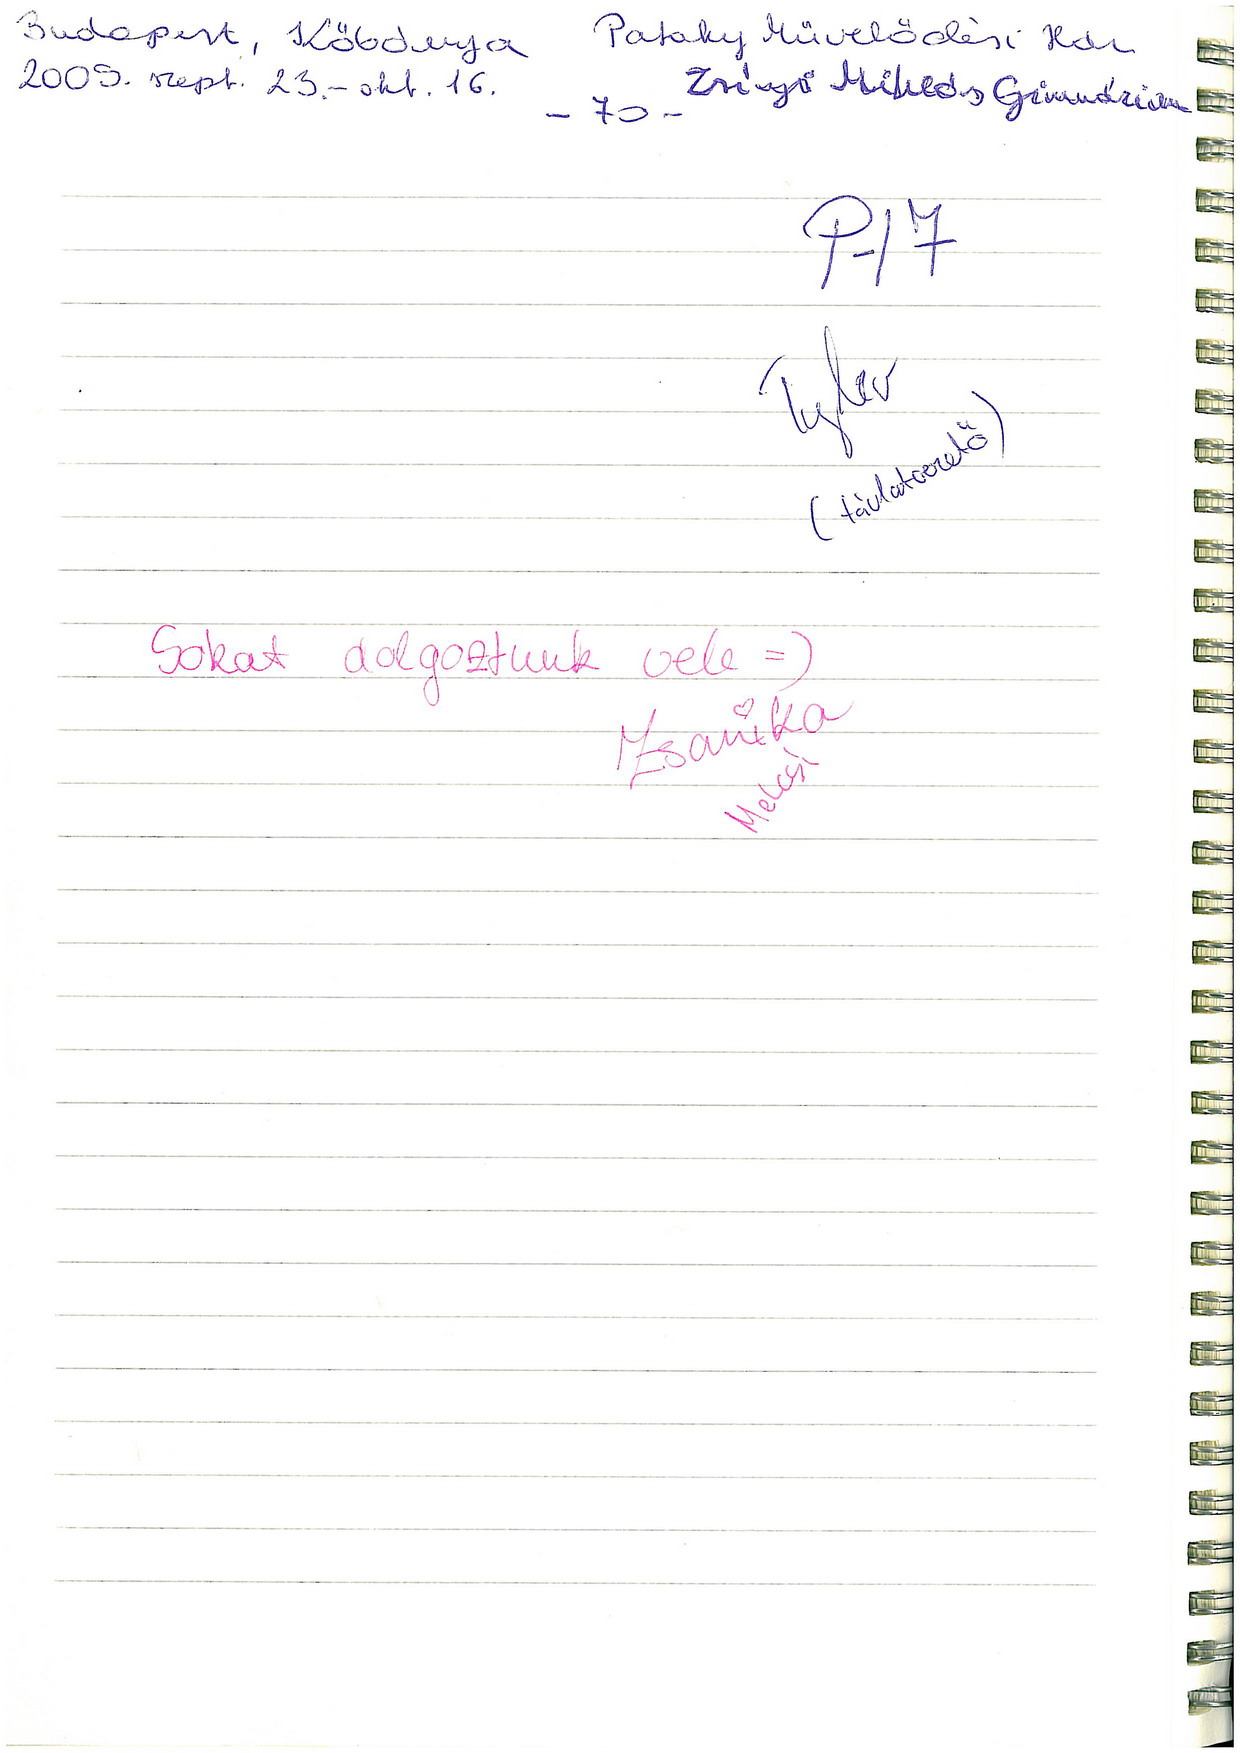 Budapest, Kőbánya
Pataky Művelődési Ház
2009. szept. 23.- okt. 16.
Zrínyi Miklós Gimnázium
- 70 -
P-17
(tárlatvezető)
Sokat dolgoztunk vele =)
Zsanika